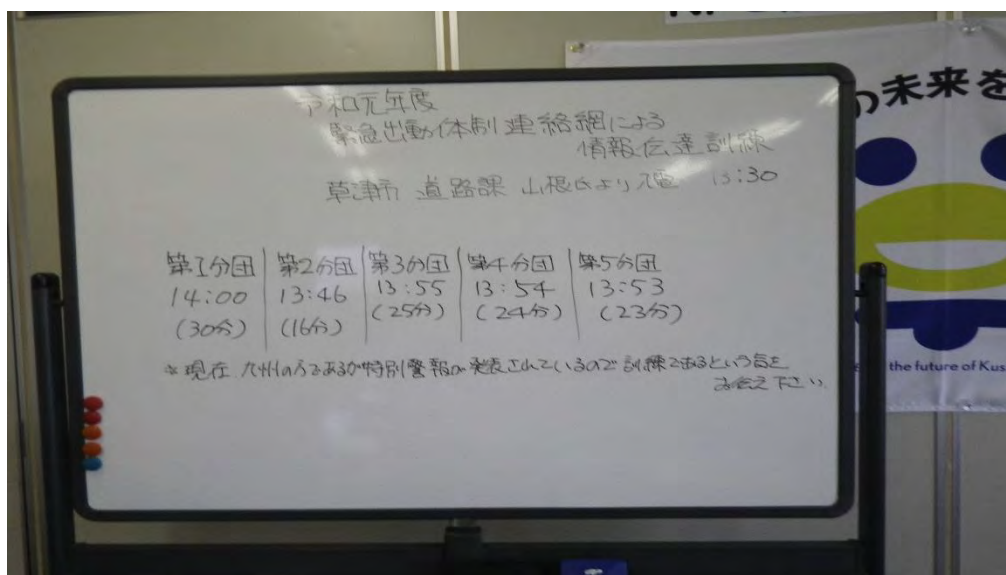 令和元年度
緊急出動体制連絡網による
情報伝達訓練
草津市 道路課 山根氏より入電 13:30
第1分団 第2分団 第3分団 第4分団 第5分団
14:00 13:46 13:55 13:54 13:53
(30分) (16分) (25分) (24分) (23分)
※現在 九州の方であるが特別警報が発表されているので訓練であるという旨を
お伝え下さい
の未来を
the future of Kus